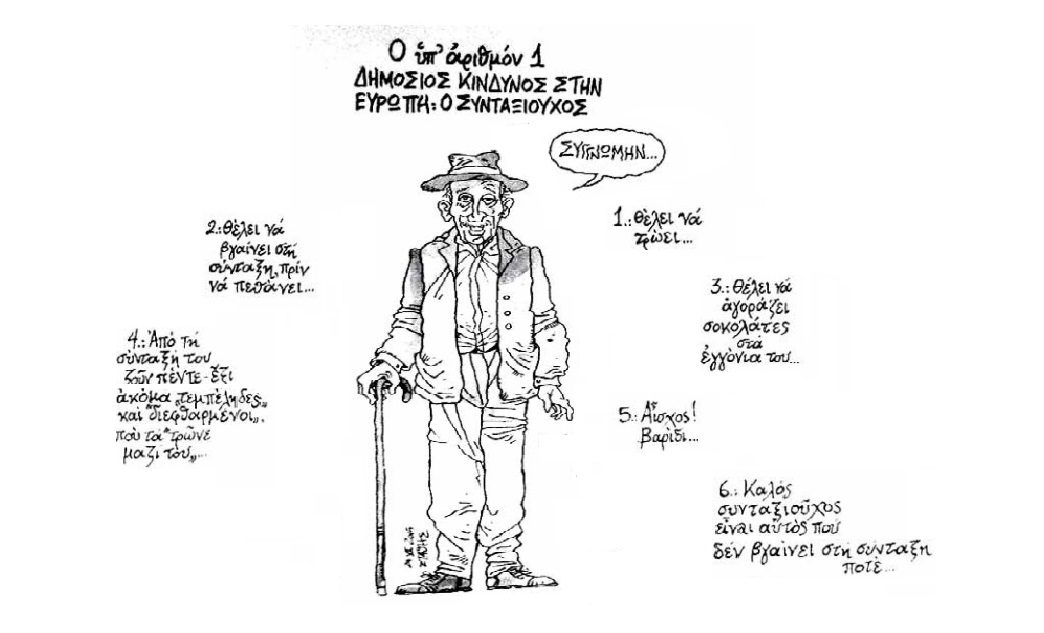 Ο ὑπ' ἀριθμόν 1
ΔΗΜΟΣΙΟΣ ΚΙΝΔΥΝΟΣ ΣΤΗΝ
ΕΥΡΩΠΗ: Ο ΣΥΝΤΑΞΙΟΥΧΟΣ
ΣΥΓΓΝΩΜΗΝ...
1.: Θέλει νά
τρώει...
2.: Θέλει νά
βγαίνει στή
σύνταξη, πρίν
νά πεθάνει...
3.: Θέλει νά
ἀγοράζει
σοκολάτες
στά
ἐγγόνια του...
4.: Ἀπό τή
σύνταξή του
ζοῦν πέντε-ἕξι
ἀκόμα „τεμπέληδες„
καί "διεφθαρμένοι„.
πού τά "τρῶνε
μαζί του„...
5.: Αἶσχος!
Βαρίδι...
6.: Καλός
συνταξιοῦχος
εἶναι αὐτός πού
δέν βγαίνει στή σύνταξη
ποτέ...